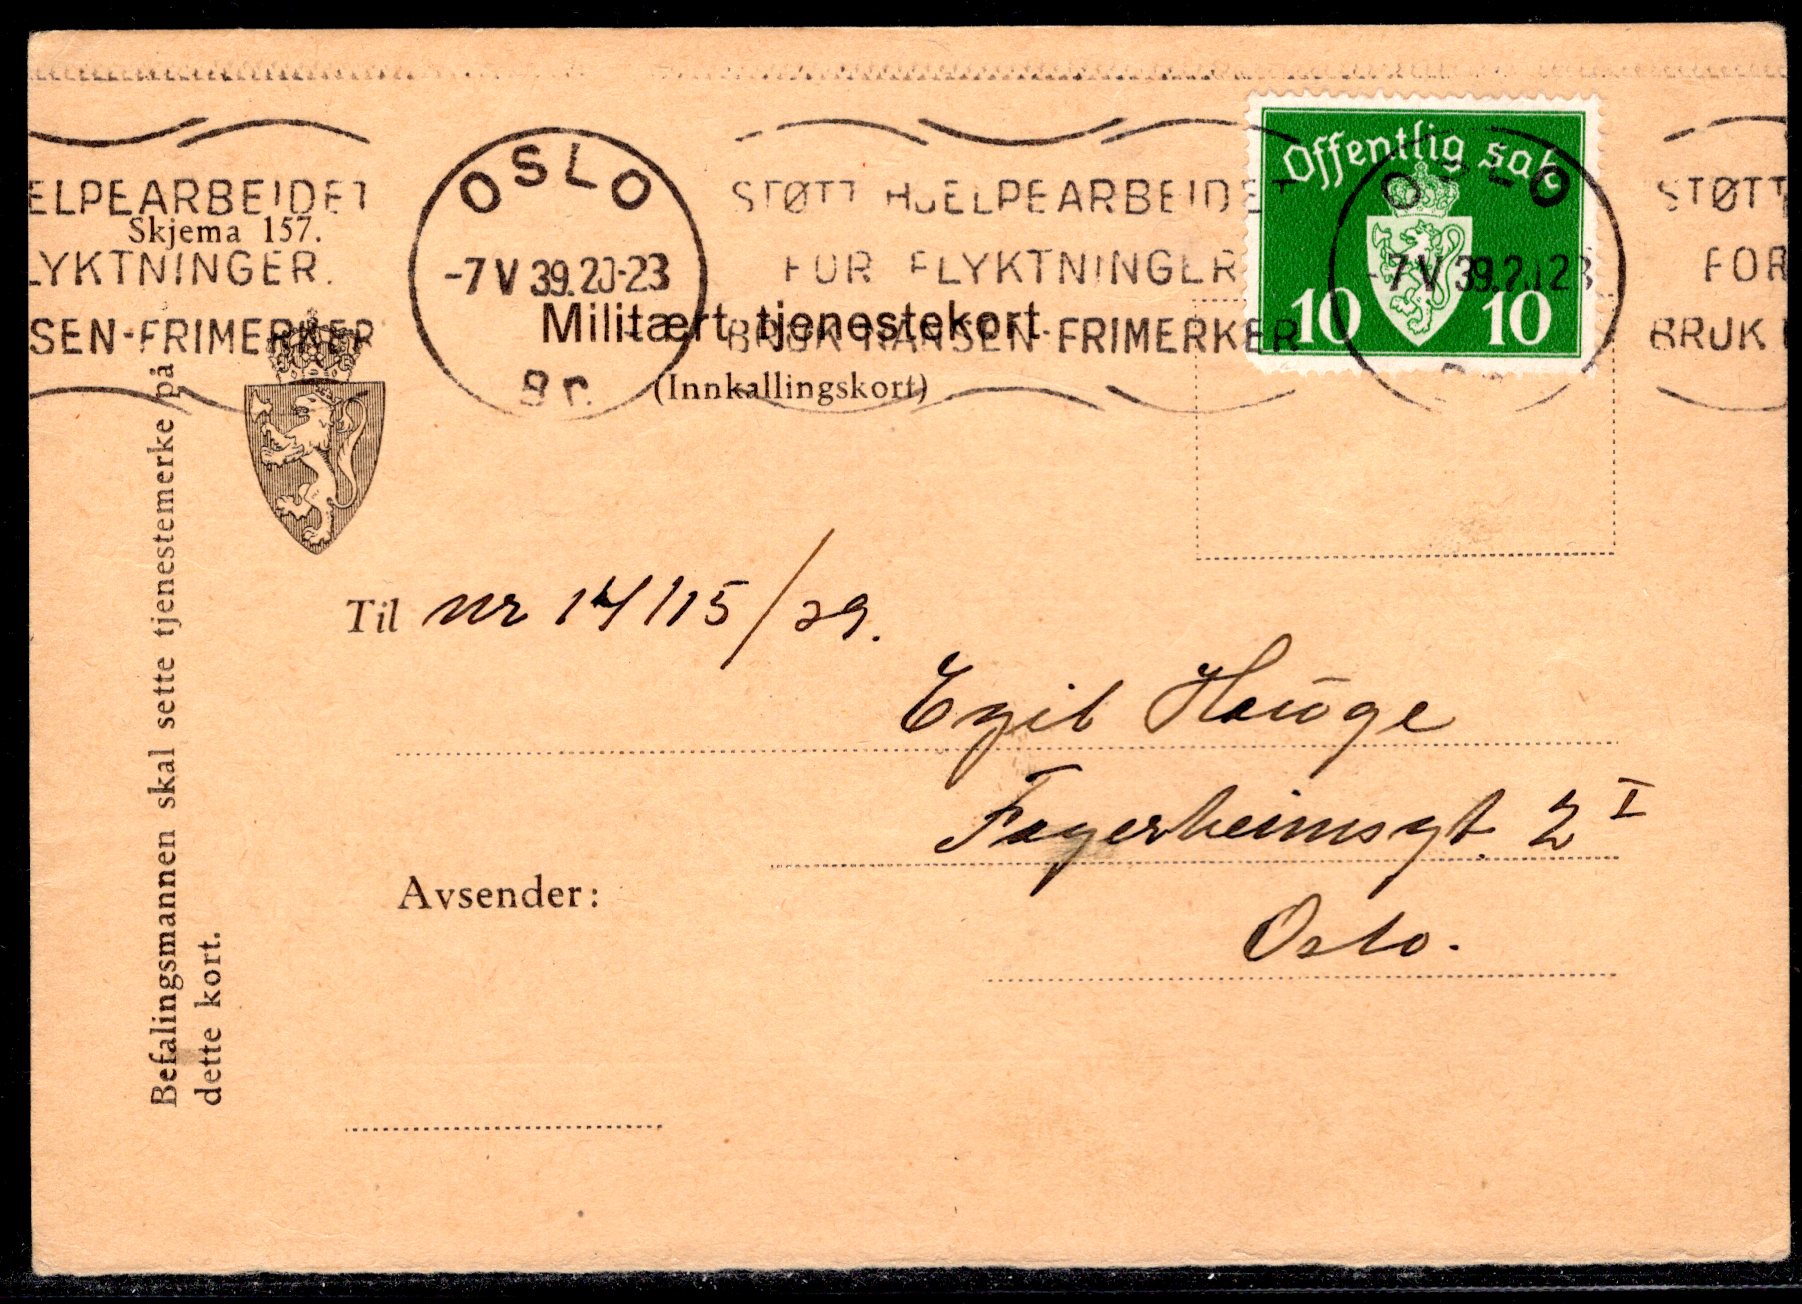 ELPEARBEIDET
LYKTNINGER.
SEN-FRIMERKER
OSLO
-7 V 39.20-23
Br.
STØTT HJELPEARBEIDET
FOR FLYKTNINGER
BRUK NANSEN-FRIMERKER
Offentlig sak
10 10
OSLO
-7 V 39.20 23
STØTT
FOR
BRUK
Skjema 157.
Militært tjenestekort
(Innkallingskort)
Befalingsmannen skal sette tjenestemerke på
dette kort.
Til nr 14115/29.
Egil Hauge
Fagerheimsgt. 2 I
Oslo.
Avsender: